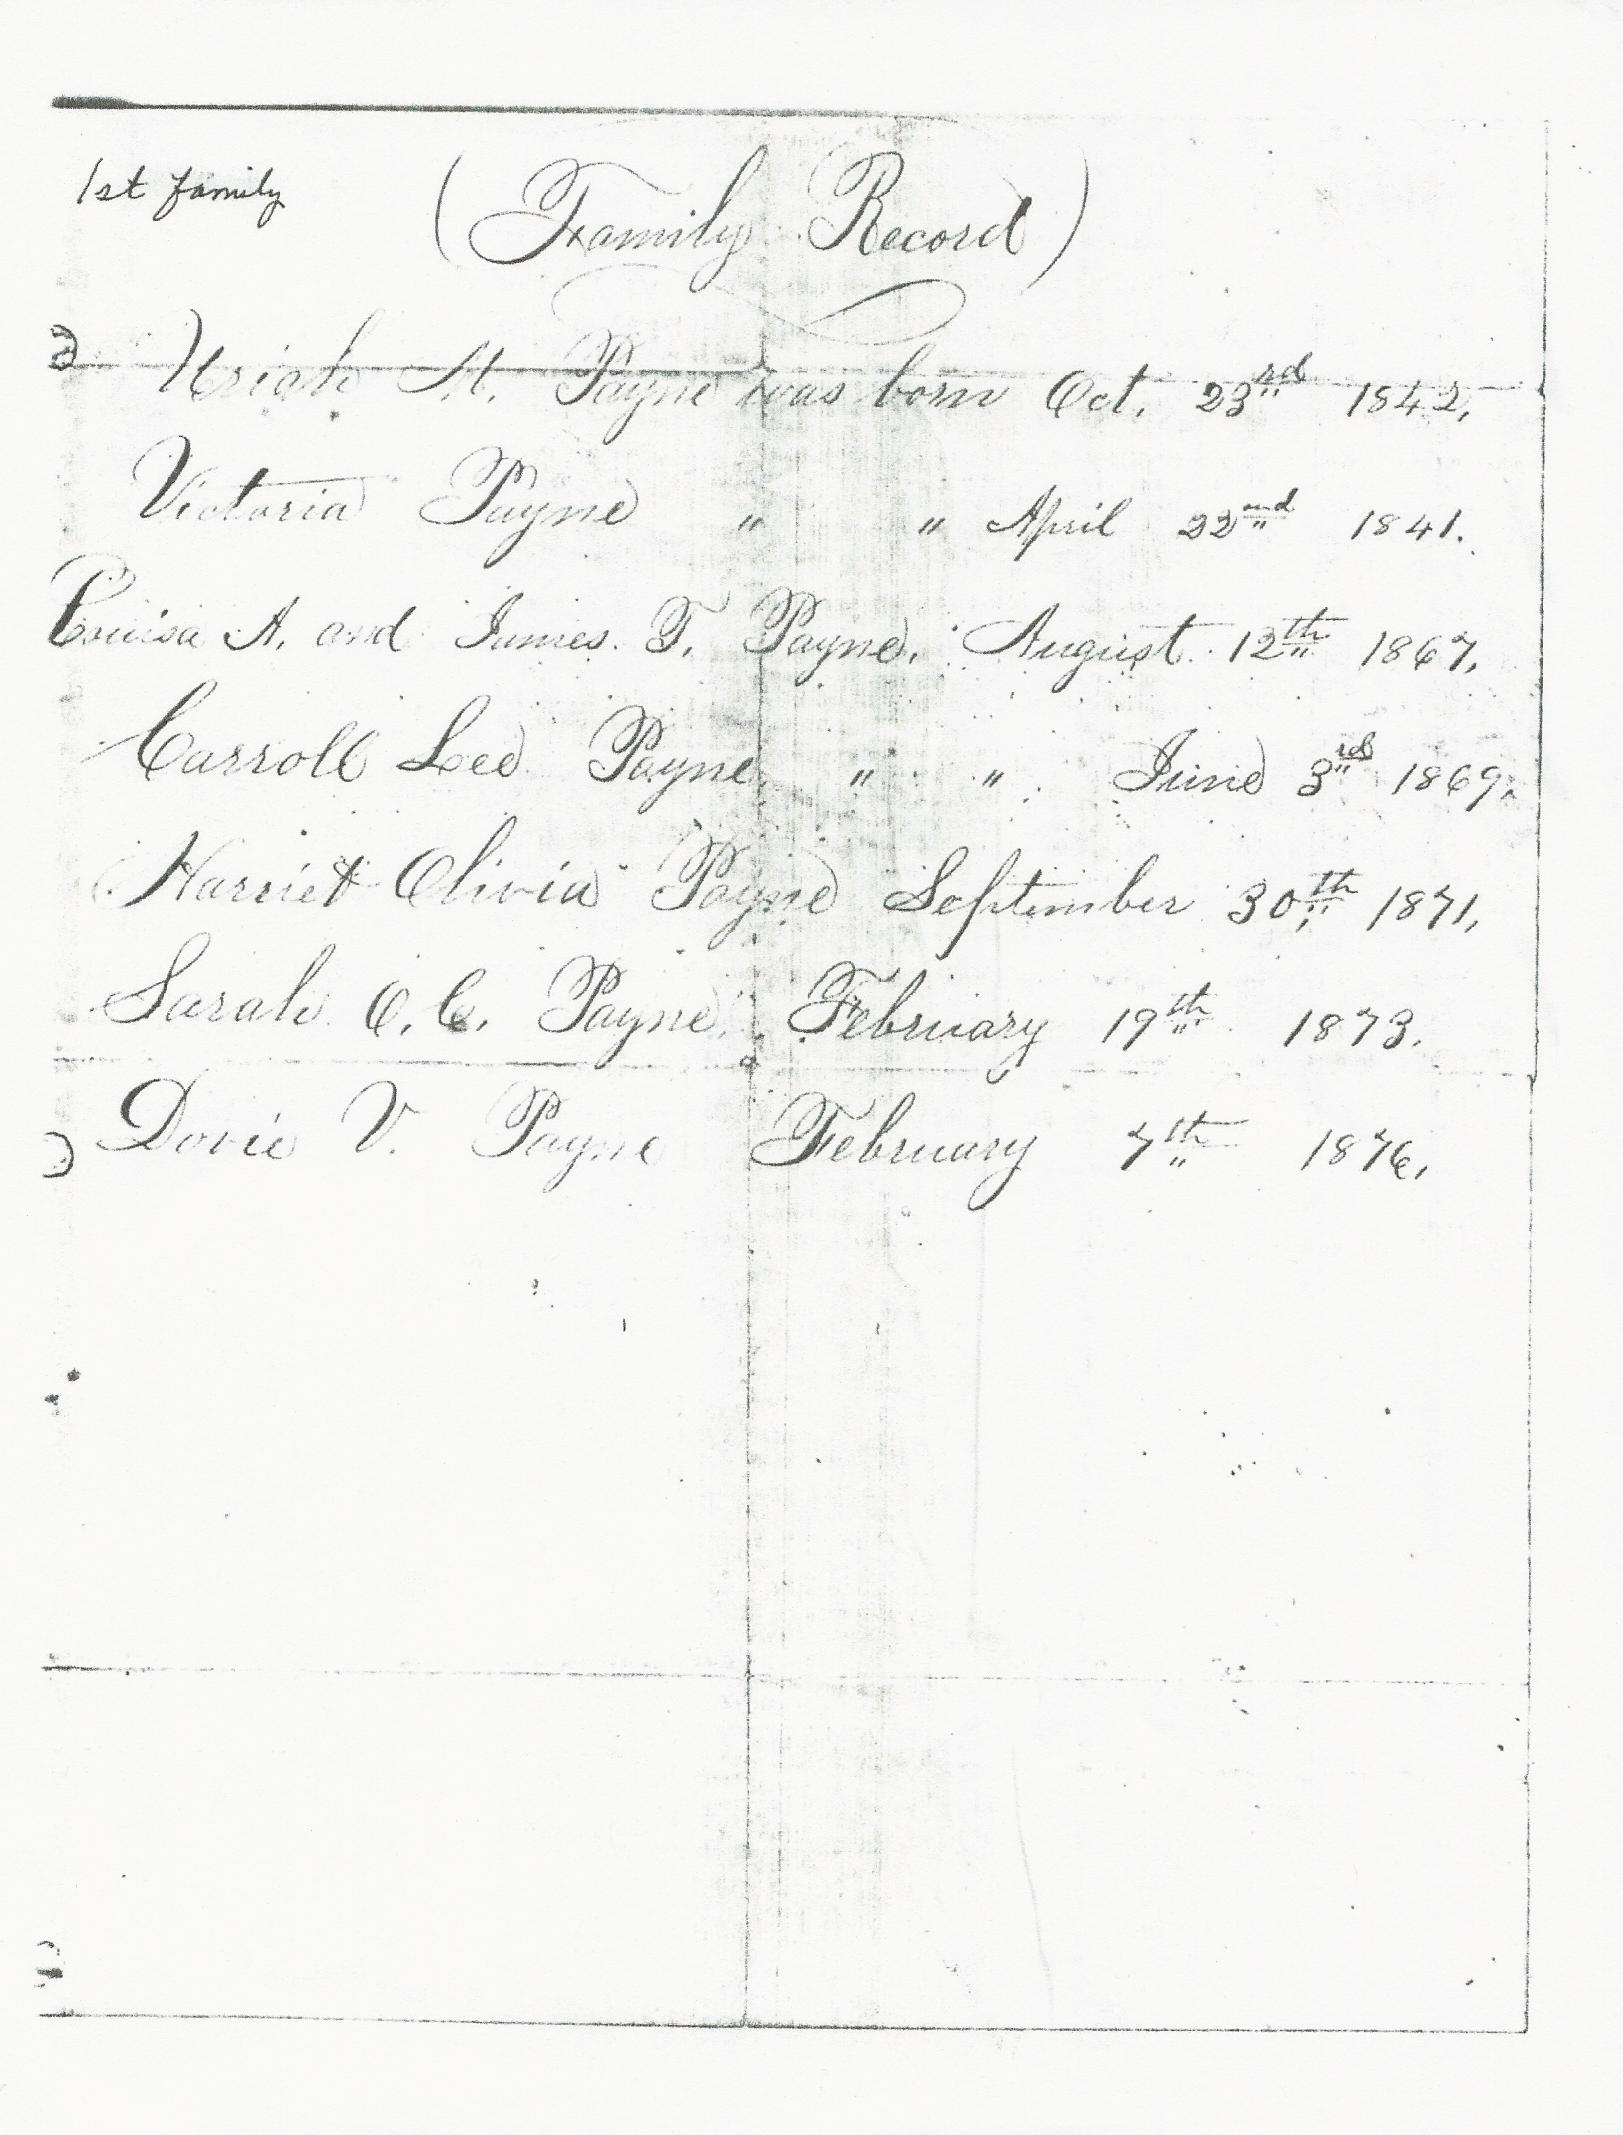 1st family
(Family Record)
Uriah M. Payne was born Oct. 23rd 1842.
Victoria Payne " " April 22nd 1841.
Louisa A. and James. T. Payne. August 12th 1867.
Carroll Lee Payne " " June 3rd 1869.
Harriet Olivia Payne September 30th 1871.
Sarah O. C. Payne. February 19th 1873.
Dovie V. Payne February 7th 1876.